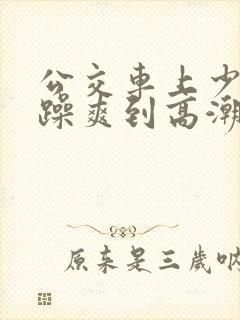 公交車上少
躁爽到高潮
原来是三歲呐